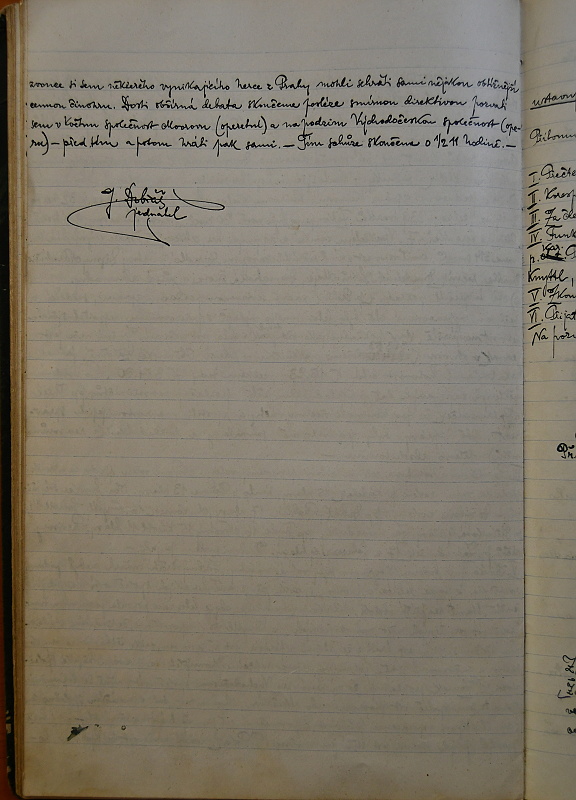 zvouce si sem některého vynikajícího herce z Prahy mohli sehráti sami nějakou obtížnější
cennou činohru. Dosti obšírná debata skončena posléze smírnou direktivou pozvati
sem v květnu společnost (operetní) a na podzim Východočeskou společnost (ope-
ru) — před tím a potom hráti pak sami. — Tím schůze skončena o ½ 11 hodině. —
J.
jednatel
ustavu
Přítomni
I. Přečte
II.
III. Za
IV. Funk
V.
VI. Přijat
Na